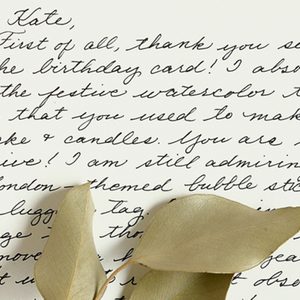 Kate,
First of all, thank you s
he birthday card! I abso
the festive watercolor
that you used to mak
ke & candles. You are
ive! I am still admirin
ondon-themed bubble stic
lugg tag.
ge
move